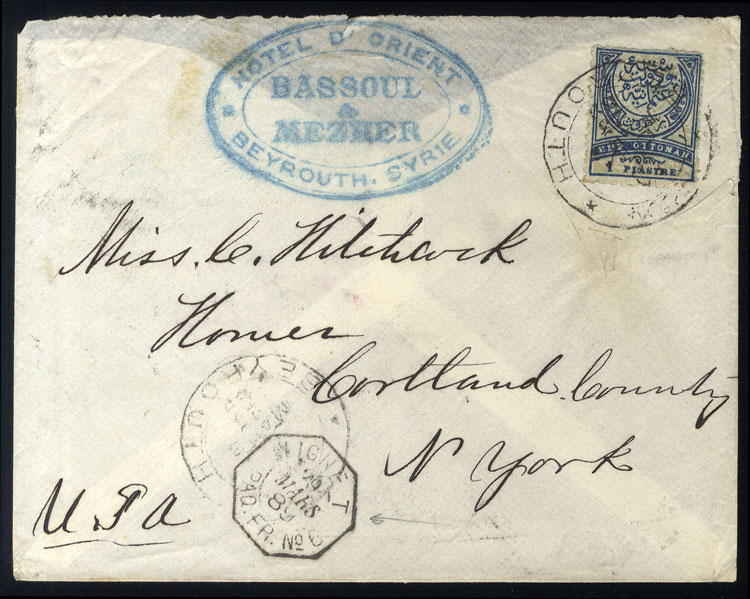 HOTEL D'ORIENT
BASSOUL
&
MEZHER
BEYROUTH. SYRIE
EMP. OTTOMAN
1 PIASTRE
Miss. C. Hitchcock
Homer
Cortland County
N York
U.S.A
BEYROUTH
LIGNE T
MARS
89
PAQ. FR. No 6